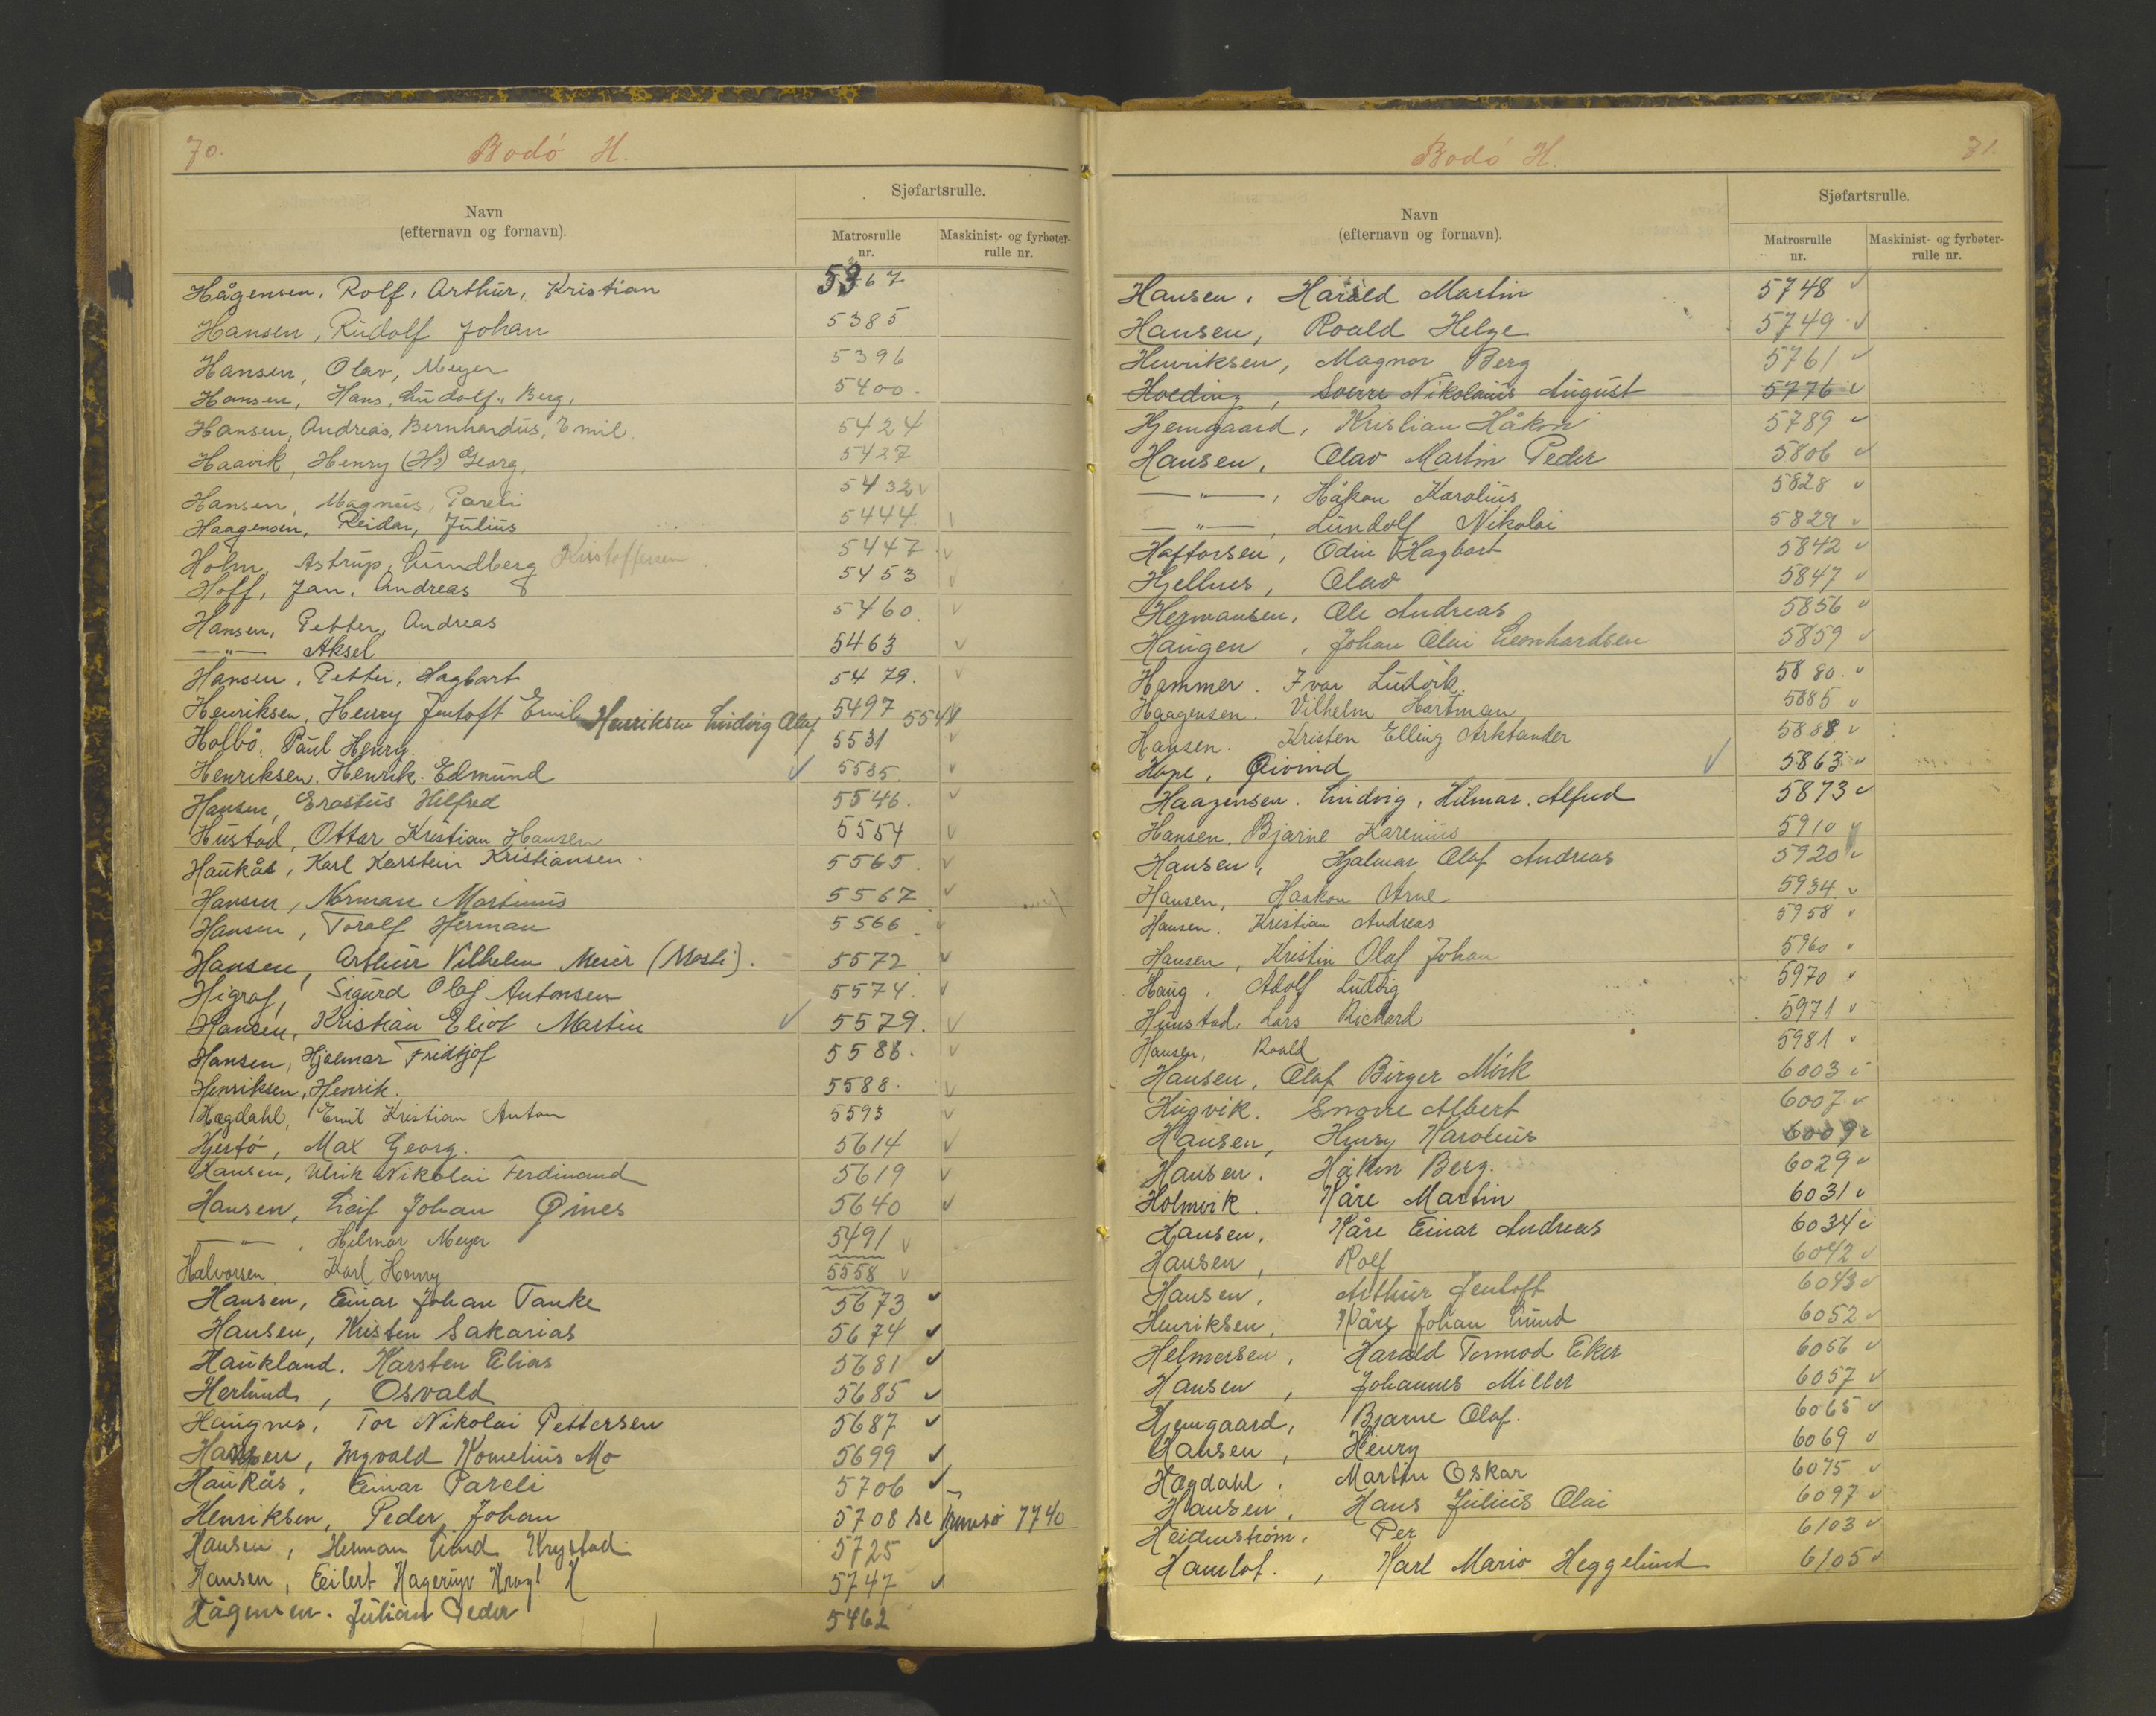 70.
Bodö H.
Navn
(efternavn og fornavn).
Sjøfartsrulle.
Matrosrulle
nr.
Maskinist- og fyrbøter-
rulle nr.
Hågensen, Rolf, Arthur, Kristian 5367
Hansen, Rudolf Johan 5385
Hansen, Olav, Meyer 5396
Hansen, Hans, Lindolf, Berg, 5400.
Hansen, Andreas, Bernhardus, Emil. 5424
Haavik, Henry (H) Georg, 5427
Hansen, Magnus, Pareli 5432 ✓
Haagensen, Reidar, Julius 5444.
Holm, Astrup, Lundberg Kristoffersen 5447 ✓
Hoff, Jan. Andreas 5453 ✓
Hansen, Petter, Andreas 5460. ✓
—"— Aksel 5463 ✓
Hansen, Petter, Hagbart 5479. ✓
Henriksen, Henry Jentoft Emil 5497 Henriksen Ludvig Olaf 5541 ✓
Holbö, Paul Henry. 5531 ✓
Henriksen, Henrik. Edmund ✓ 5535. ✓
Hansen, Erastus Hilfred 5546. ✓
Hustad, Ottar Kristian Hansen 5554 ✓
Haukås, Karl Karstein Kristiansen. 5565. ✓
Hansen, Norman Martinus 5567 ✓
Hansen, Toralf Herman 5566. ✓
Hansen, Arthur Vilhelm Meier (Mosti). 5572 ✓
Higraf, Sigurd Olaf Antonsen 5574. ✓
Hansen, Kristian Eliot Martin ✓ 5579. ✓
Hansen, Hjalmar Fridtjof 5586. ✓
Henriksen, Henrik. 5588. ✓
Hægdahl, Emil Kristian Anton 5593 ✓
Hjertö, Max Georg. 5614 ✓
Hansen, Ulrik Nikolai Ferdinand 5619 ✓
Hansen, Leif Johan Øines 5640 ✓
—"—, Helmar Meyer 5491 ✓
Halvorsen. Karl Henry 5558 ✓
Hansen, Einar Johan Tanke 5673 ✓
Hansen, Kristen Sakarias 5674 ✓
Haukland. Karsten Elias 5681 ✓
Herlund, Osvald 5685 ✓
Haugnes, Tor Nikolai Pettersen 5687 ✓
Hansen, Ingvald Kornelius Mo 5699 ✓
Haukås, Einar Pareli 5706 ✓
Henriksen, Peder Johan 5708 se Tromsö 7740
Hansen, Herman Lind Krystad 5725 ✓
Hansen, Eilert 5747 ✓
Hågensen. Julian Peder 5462
Bodö H.
71.
Navn
(efternavn og fornavn).
Sjøfartsrulle.
Matrosrulle
nr.
Maskinist- og fyrbøter-
rulle nr.
Hansen, Harald Martin 5748 ✓
Hansen, Roald Helge 5749 ✓
Henriksen, Magnor Berg 5761 ✓
Hoeding, Sverre Nikolaus August 5776 ✓
Hjemgaard, Kristian Håkon 5789 ✓
Hansen, Olav Martin Peder 5806 ✓
—"—, Håkon Karolius 5828 ✓
—"—, Lundolf Nikolai 5829 ✓
Haftorsen, Odin Hagbart 5842 ✓
Hjellnes, Olav 5847 ✓
Hermansen, Ole Andreas 5856 ✓
Haugen, Johan Olai Leonhardsen 5859 ✓
Hammer. Ivar Ludvik. 5880. ✓
Haagensen. Vilhelm Hartman 5885 ✓
Hansen. Kristen Elling Arktander 5888 ✓
Hope, Øivind ✓ 5863 ✓
Haagensen. Ludvig, Hilmar. Alfred 5873 ✓
Hansen, Bjarne Karenius 5910 ✓
Hansen, Hjalmar Olaf Andreas 5920 ✓
Hansen, Haakon Arne 5934 ✓
Hansen. Kristian Andreas 5958 ✓
Hansen, Kristin Olaf Johan 5960 ✓
Haug, Adolf Ludvig 5970 ✓
Hunstad, Lars Richard 5971 ✓
Hansen, Roald 5981 ✓
Hansen, Olaf Birger Mörk 6003 ✓
Hugvik. Snorre Albert 6007 ✓
Hansen, Henry Karolius 6009 ✓
Hansen. Håkon Berg. 6029 ✓
Holmvik. Kåre Martin 6031 ✓
Hansen, Kåre Einar Andreas 6034 ✓
Hansen, Rolf 6042 ✓
Hansen, Arthur Jentoft 6043 ✓
Henriksen, Kåre Johan Lund 6052 ✓
Helmersen, Harald Tormod Eker 6056 ✓
Hansen, Johannes Miller 6057 ✓
Hjemgaard, Bjarne Olaf. 6065 ✓
Hansen, Henry 6069 ✓
Hægdahl, Martin Oskar 6075 ✓
Hansen, Hans Julius Olai 6097 ✓
Heidenstrøm, Per 6103 ✓
Hamlot., Karl Mario Heggelund 6105 ✓